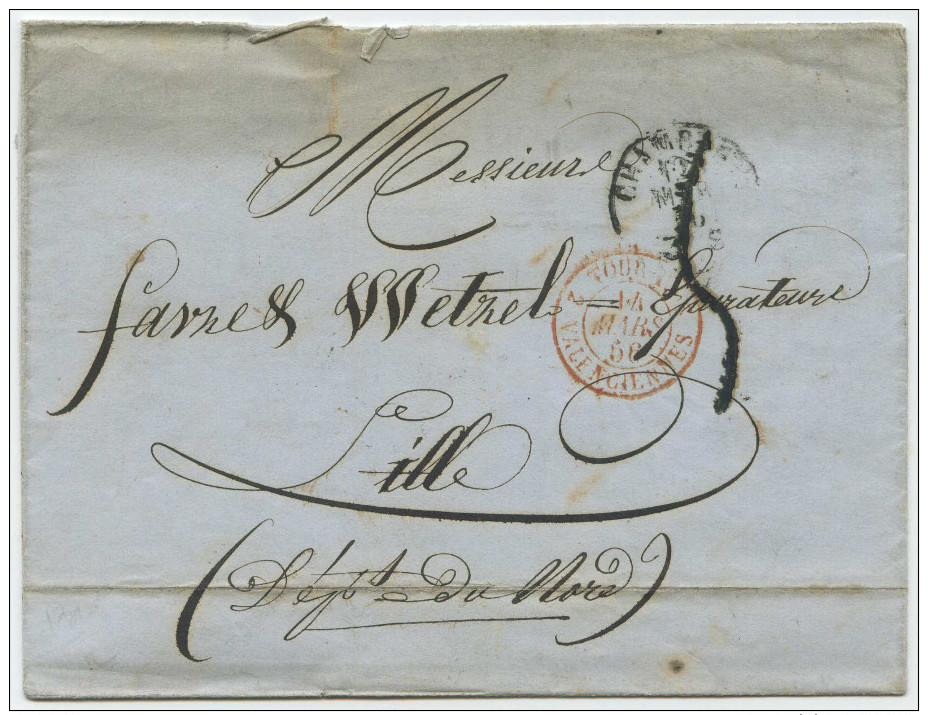 Messieurs
Favre & Wetzel = Epurateurs
Lille
(Dépt. du Nord)
TOURNAI
14
MARS
56
2 VALENCIENNES
MARS